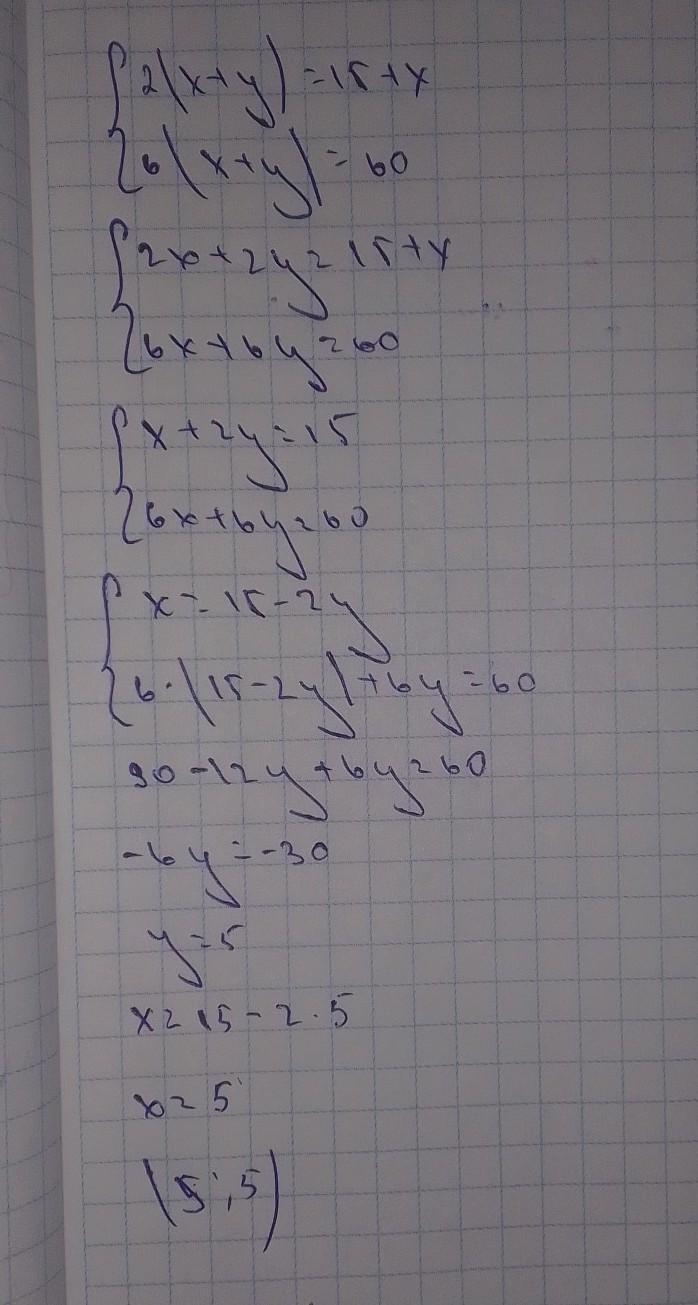 {2(x+y)=15+x
{6(x+y)=60
{2x+2y=15+x
{6x+6y=60
{x+2y=15
{6x+6y=60
{x=15-2y
{6·(15-2y)+6y=60
90-12y+6y=60
-6y=-30
y=5
x=15-2·5
x=5
(5;5)